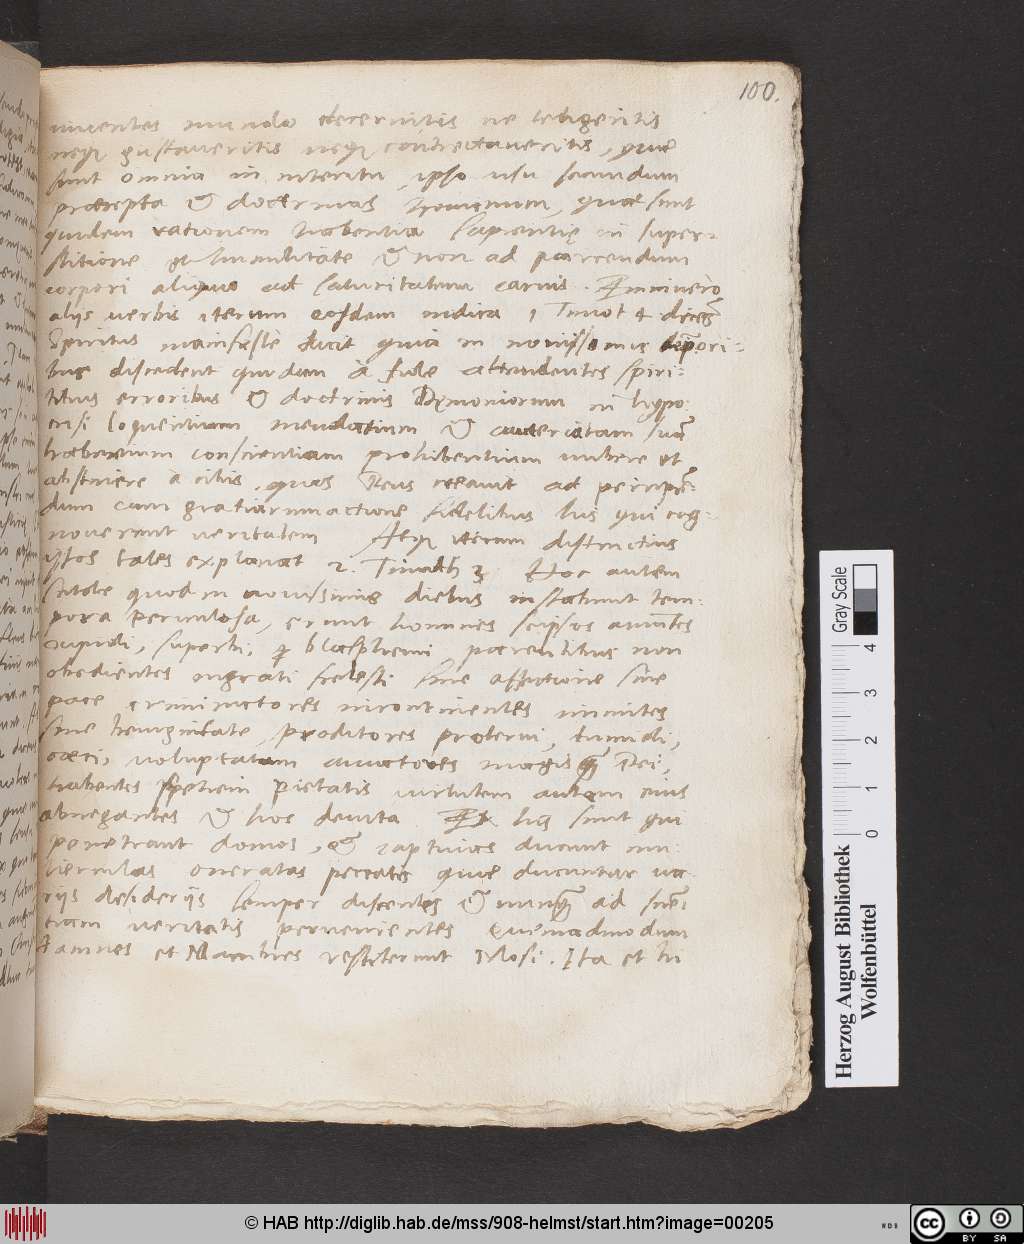 100.
viventes mundo decernitis ne tetigeritis
neqȝ gustaveritis neqȝ contrectaveritis, que
sunt omnia in interitu ipso usu secundum
præcepta & doctrinas hominum, quæ sunt
quidem rationem habentia sapientię in super-
stitione et humilitate & non ad parcendum
corpori aliquo ad saturitatem carnis. Eminvero
alijs verbis iterum eosdem indica 1 Timot 4 dicens
Spiritus manifeste dicit quia in novissimis tempori-
bus discedent quidam a fide attendentes spiri-
tibus erroribus & doctrinis Dęmoniorum in hypo
crisi loquentium mendatium & cauteriatam suā
habentium conscientiam prohibentium nubere et
abstinere a cibis, quas Deus creavit ad percipiē-
dum cum gratiarumactione fidelibus his qui cog-
noverunt veritatem Atqȝ iterum distinctius
ipsos tales explanat 2. Timoth 3. Hoc autem
scitote quod in novissimis diebus instabunt tem-
pora periculosa, erunt homines seipsos amātes
cupidi, superbi, blasphemi parentibus non
obedientes ingrati scelesti sine affectione sine
pace criminatores incontinentes immites
sine benignitate, proditores protervi, tumidi,
cæci, voluptatum amatores magisqȝ Dei,
habentes speciem pietatis virtutem autem eius
abnegantes & hos devita Ex his sunt qui
penetrant domos, & captivas ducunt mu-
lierculas oneratas peccatis quæ ducuntur va-
rijs desiderijs semper discentes & nunqȝ ad sciē
tiam veritatis pervenientes Quemadmodum
Iamnes et Mambres restiterunt Mosi. Ita et hi
Gray Scale
0 1 2 3 4
Herzog August Bibliothek
Wolfenbüttel
© HAB http://diglib.hab.de/mss/908-helmst/start.htm?image=00205
WDB
cc BY SA